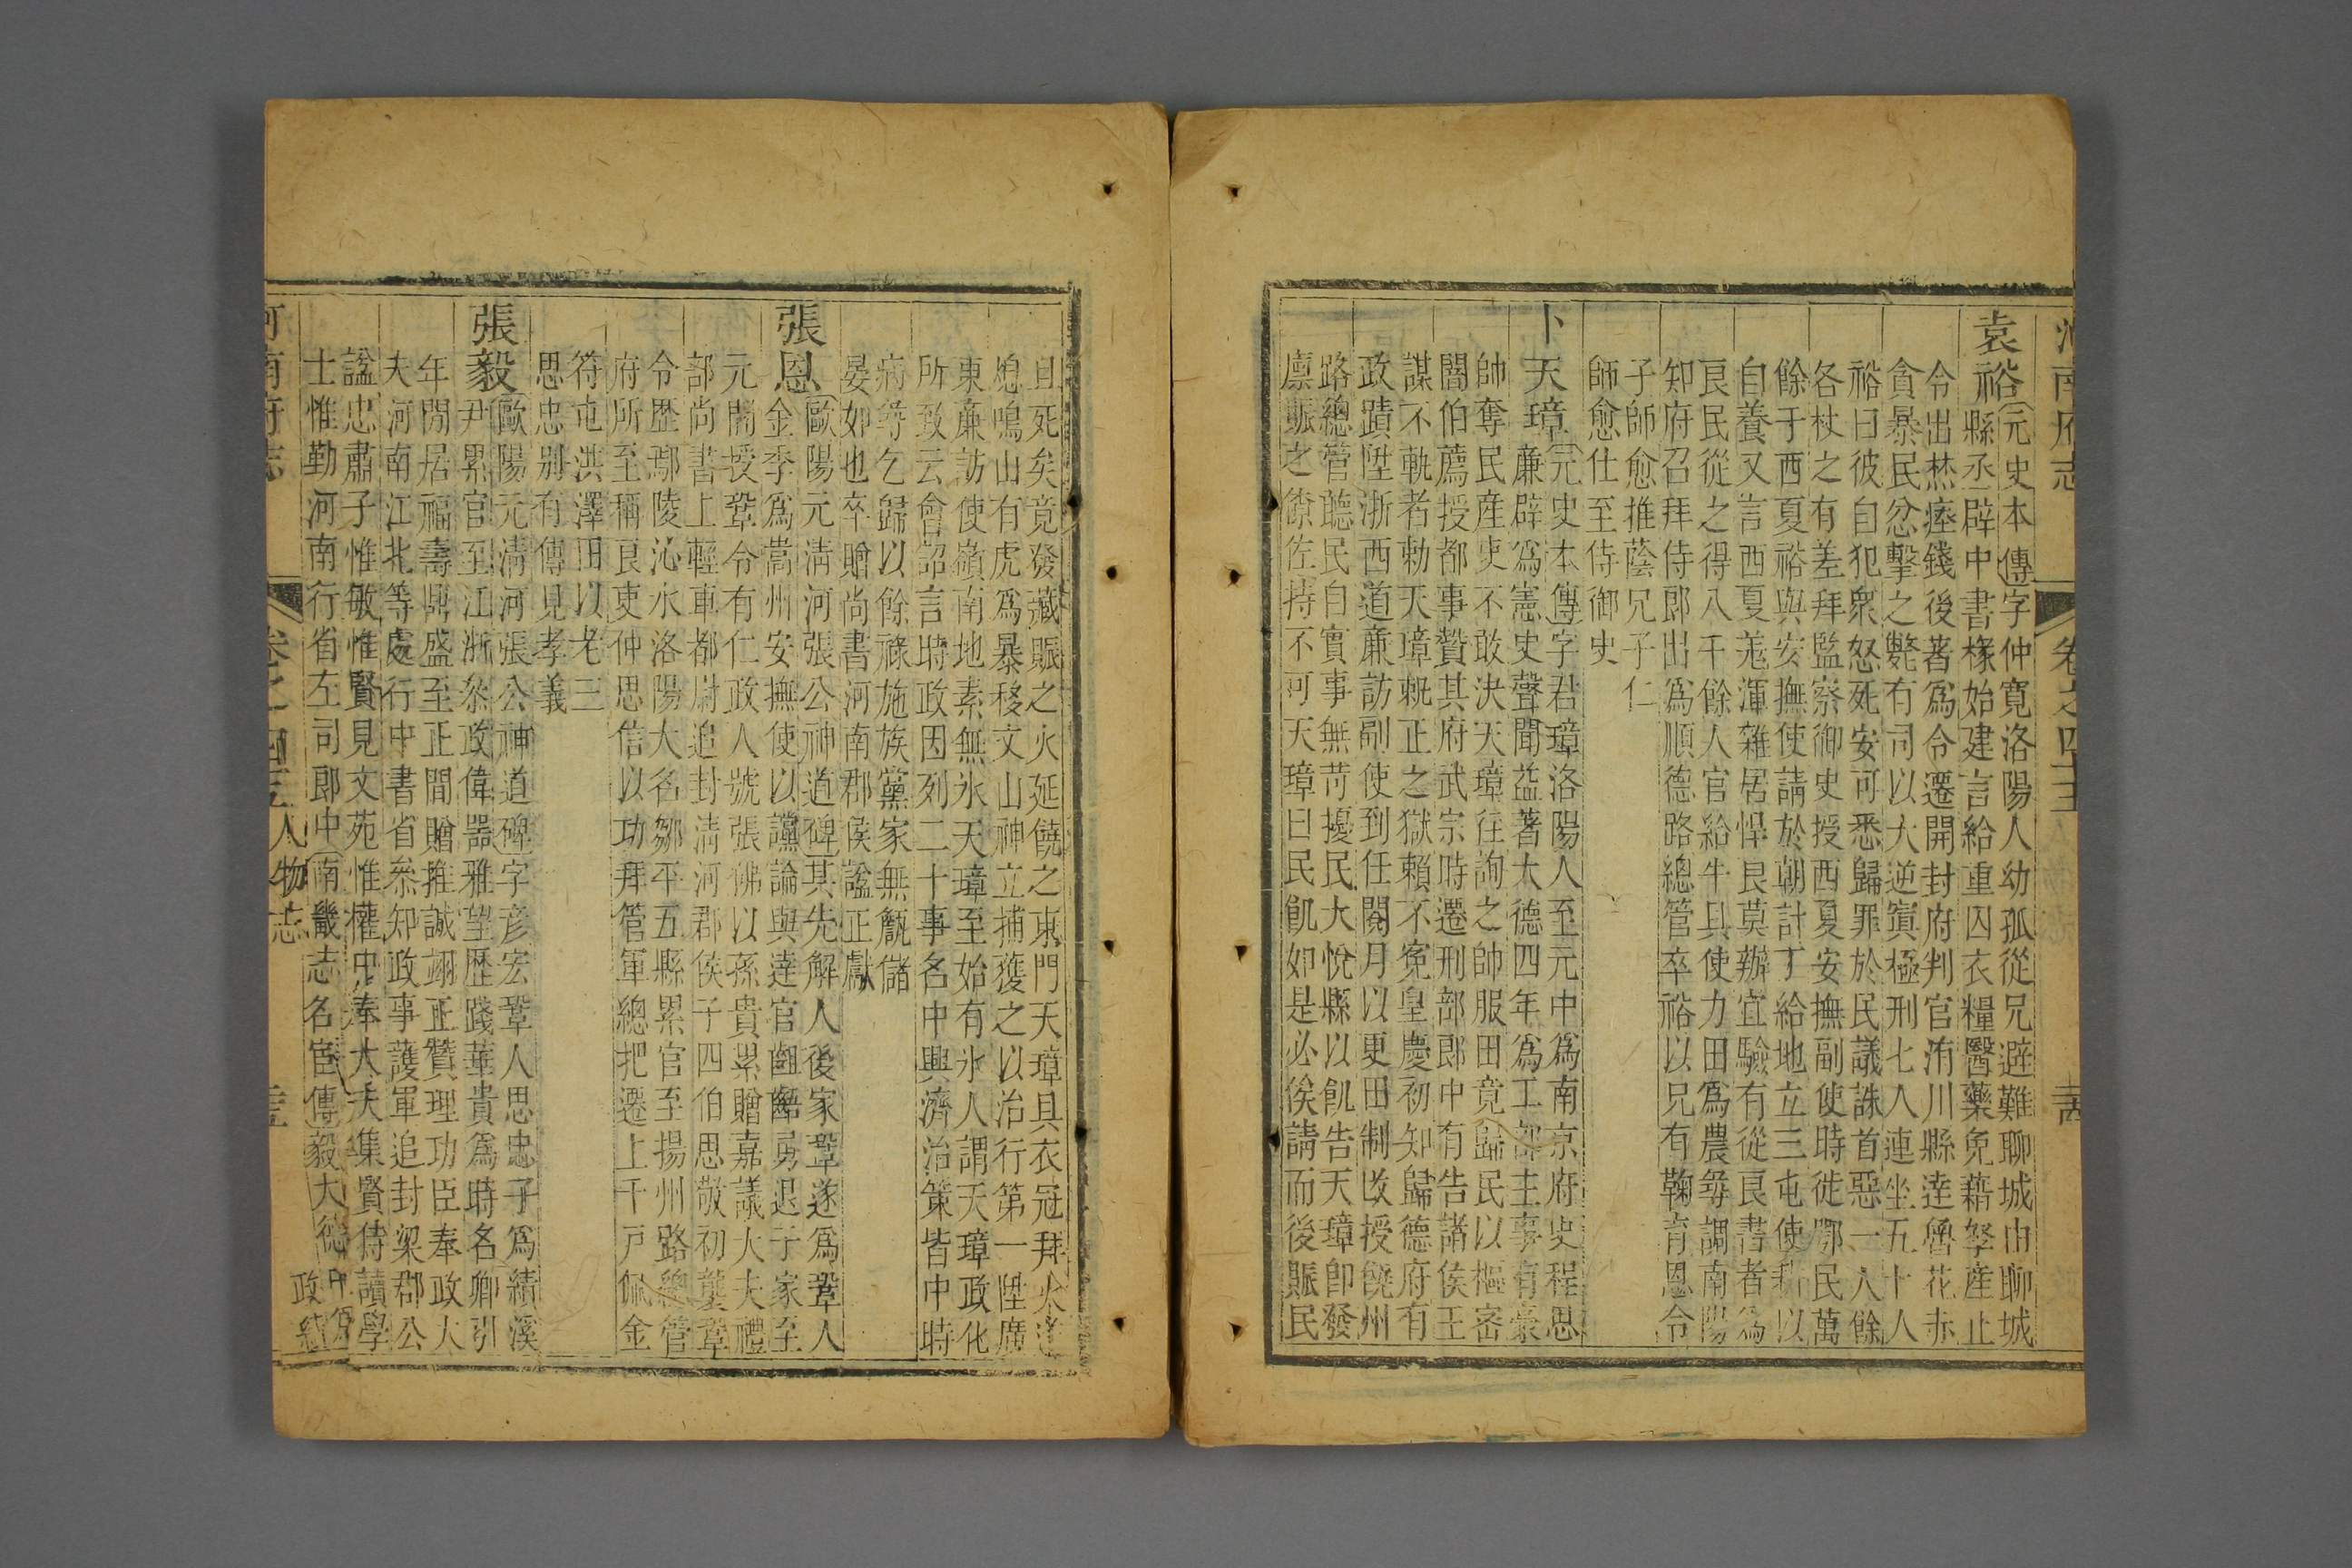 河南府志 卷之四十三
袁裕 元史本傳字仲寛洛陽人幼孤從兄避難聊城由聊城
縣丞辟中書椽始建言給重囚衣糧醫藥免藉孥産止
令出焚瘞錢後著爲令遷開封府判官洧川縣達魯花赤
貪暴民忿擊之斃有司以大逆寘極刑七人連坐五十人
裕曰彼自犯衆怒死安可悉歸罪於民議誅首惡一人餘
各杖之有差拜監察御史授西夏安撫副使時徙鄂民萬
餘于西夏裕與安撫使請於朝計丁給地立三屯使耕以
自養又言西夏羗渾雜居悍良莫辦宜驗有從良書者爲
良民從之得八千餘人官給牛具使力田爲農尋調南陽
知府召拜侍郎出爲順德路總管卒裕以兄有鞠育恩令
子師愈推蔭兄子仁
師愈仕至侍御史
卜天璋 元史本傳字君璋洛陽人至元中爲南京府史程思
廉辟爲憲史聲聞益著大德四年爲工部主事有豪
帥奪民産吏不敢決天璋往詢之帥服田竟歸民以樞密
閻伯薦授都事贊其府武宗時遷刑部郎中有告諸侯王
謀不軌者勅天璋軏正之獄賴不寃皇慶初知歸德府有
政蹟陞浙西道廉訪副使到任閱月以更田制改授饒州
路總管聽民自實事無苛擾民大悅縣以飢告天璋卽發
廪賑之僚佐持不可天璋曰民飢如是必俟請而後賑民
且死矣竟發藏賑之火延饒之東門天璋具衣冠拜火遂
熄鳴山有虎爲暴移文山神立捕獲之以治行第一陞廣
東廉訪使嶺南地素無氷天璋至始有氷人謂天璋政化
所致云會詔言時政因列二十事名中興濟治策皆中時
病尋乞歸以餘祿施族黨家無甔儲
晏如也卒贈尚書河南郡侯諡正獻
張恩 歐陽元淸河張公神道碑其先解人後家鞏遂爲鞏人
金季爲嵩州安撫使以讜論與達官齟齬勇退子家至
元閒授鞏令有仁政人號張佛以孫貴累贈嘉議大夫禮
部尚書上輕車都尉追封淸河郡侯子四伯思敬初龔章
令歴鄢陵沁水洛陽大名鄒平五縣累官至揚州路總管
府所至稱良吏仲思信以功拜管軍總把遷上千戸佩金
符屯洪澤田以老三
思忠别有傳見孝義
張毅 歐陽元淸河張公神道碑字彦宏鞏人思忠子爲績溪
尹累官至江浙叅政偉器雅望歴踐華貴爲時名卿引
年閒居福壽鼎盛至正間贈推誠翊正贊理功臣奉政大
夫河南江北等處行中書省叅知政事護軍追封梁郡公
諡忠肅子惟敏惟賢見文苑惟權中奉大夫集賢侍讀學
士惟勤河南行省左司郎中 南畿志名宦傳毅大德中
政績
河南府志 卷之四十三人物志